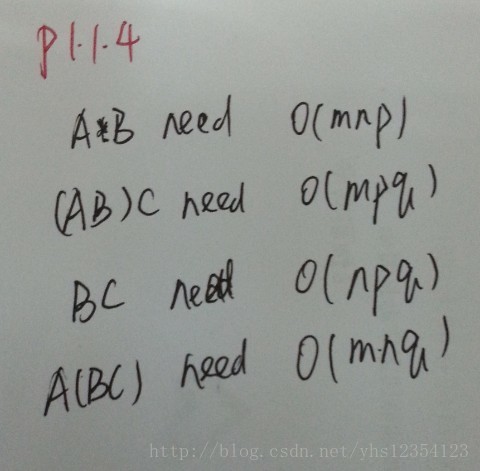 P1.1.4
A*B need O(mnp)
(AB)C need O(mpq)
BC need O(npq)
A(BC) need O(mnq)
http://blog.csdn.net/yhs12354123